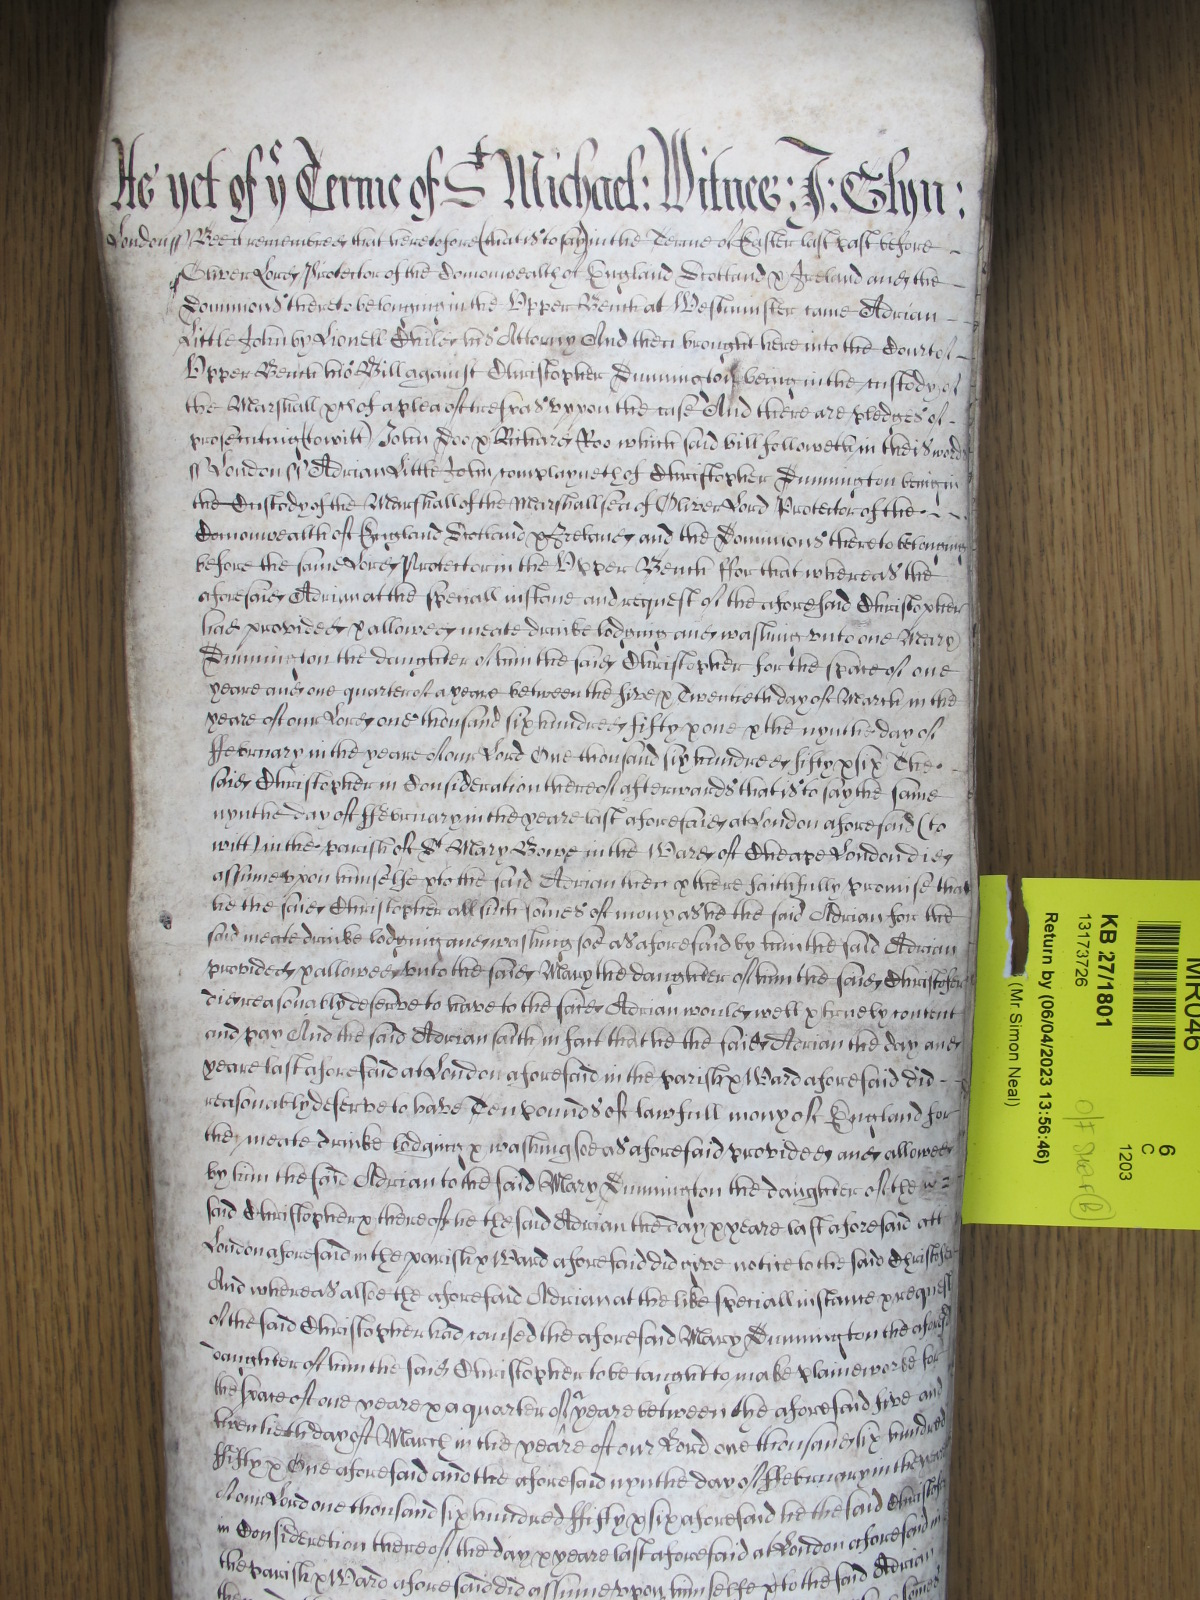 As yet of yᵉ Terme of Sᵗ Michael: Witnes: J: Glyn:
London ss Bee it remembred that heretofore (that is to say) in the Terme of Easter last past before
Oliver Lord Protector of the Comonwealth of England Scotland & Ireland and the
Dominions thereto belonging in the Upper Bench at Westminster came Adrian
Little John by Lionell Child his Attorny And then brought here into the Court of
Upper Bench his Bill against Christopher Dunnington being in the custody of
the Marshall &c of a plea of trespas uppon the case And there are pledges of
prosecuting (towitt) John Doo & Richard Roo which said bill followeth in theis words
ss London ss Adrian Little John complayneth of Christopher Dunnington being in
the Custody of the Marshall of the Marshallsea of Oliver Lord Protector of the
Comonwealth of England Scotland & Ireland and the Dominions thereto belonging
before the same Lord Protector in the Upper Bench ffor that whereas the
aforesaid Adrian at the speciall instance and request of the aforesaid Christopher
had provided & allowed meate drinke lodging and washing unto one Mary
Dunnington the daughter of him the said Christopher for the space of one
yeare and one quarter of a yeare betweene the five & Twentieth day of March in the
yeare of our Lord one thousand six hundred fifty & one & the nynthe day of
ffebruary in the yeare of our Lord One thousand six hundred fifty & six The
said Christopher in Consideration thereof afterwards that is to say the same
nynthe day of ffebruary in the yeare last aforesaid at London aforesaid (to
witt) in the parish of Sᵗ Mary Bowe in the Ward of Cheape London did
assume uppon himselfe & to the said Adrian then & there faithfully promise that
he the said Christopher all such somes of mony as he the said Adrian for the
said meate drinke lodging and washing soe as aforesaid by him the said Adrian
provided & allowed unto the said Mary the daughter of him the said Christofer
did reasonably deserve to have to the said Adrian would well & truely content
and pay And the said Adrian saith in fact that he the said Adrian the day and
yeare last aforesaid at London aforesaid in the parish & Ward aforesaid did
reasonably deserve to have Ten pounds of lawfull mony of England for
the meate drinke lodging & washing soe as aforesaid provided and allowed
by him the said Adrian to the said Mary Dunnington the daughter of the
said Christopher & thereof he the said Adrian the day & yeare last aforesaid att
London aforesaid in the parish & Ward aforesaid did give notice to the said Christofer
And whereas alsoe the aforesaid Adrian at the like speciall instance & request
of the said Christopher had caused the aforesaid Mary Dunnington the aforesd
daughter of him the said Christopher to be taught to make plaineworke for
the space of one yeare & a quarter of a yeare betweene the aforesaid five and
twentieth day of March in the yeare of our Lord one thousand six hundred
ffifty & One aforesaid and the aforesaid nynthe day of ffebruary in the yeare
of our Lord one thousand six hundred ffifty & six aforesaid he the said Christofer
in Consideretion thereof the day & yeare last aforesaid at London aforesaid in
the parish & Ward aforesaid did assume uppon himselfe & to the said Adrian
MR046
6
C
1203
KB 27/1801
13173726
Return by (06/04/2023 13:56:46)
(Mr. Simon Neal)